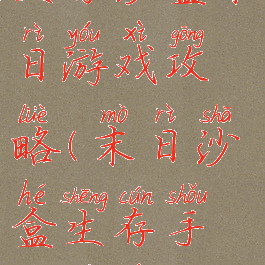 rì yóu xì gōng
日游戏攻
lüè mò rì shā
略(末日沙
hé shēng cún shǒu
盒生存手